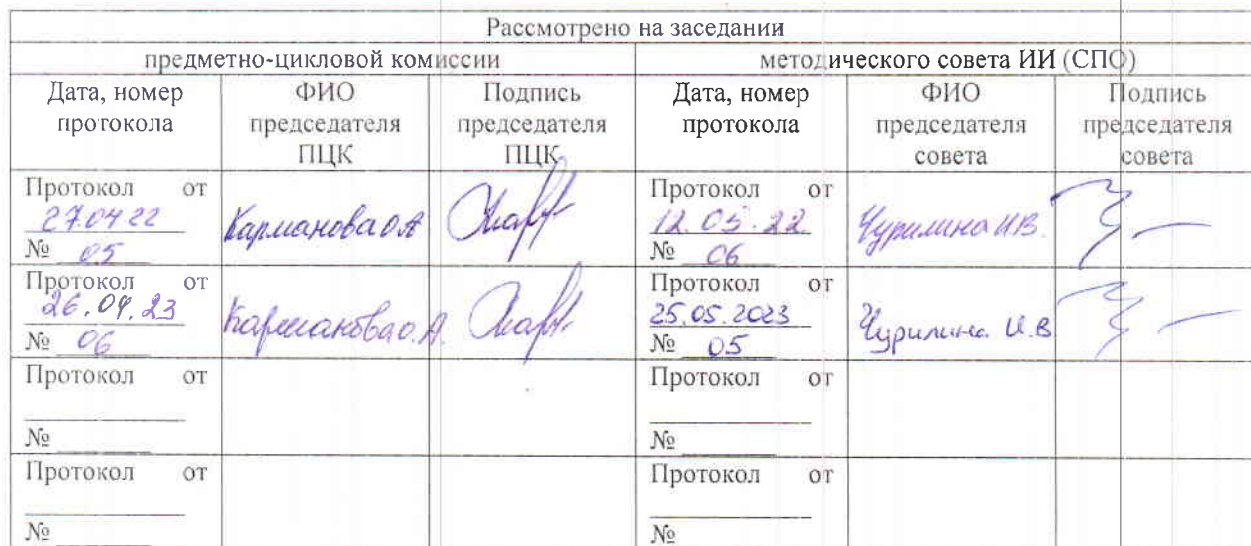 Рассмотрено на заседании
предметно-цикловой комиссии методического совета ИИ (СПО)
Дата, номер протокола ФИО председателя ПЦК Подпись председателя ПЦК Дата, номер протокола ФИО председателя совета Подпись председателя совета
Протокол от
27.04 22
№ 05
Карманова О.А
Протокол от
12.05.22
№ 06
Чурилина И.В.
Протокол от
26.04.23
№ 06
Карманова О.А.
Протокол от
25.05.2023
№ 05
Чурилина И.В
Протокол от
№
Протокол от
№
Протокол от
№
Протокол от
№